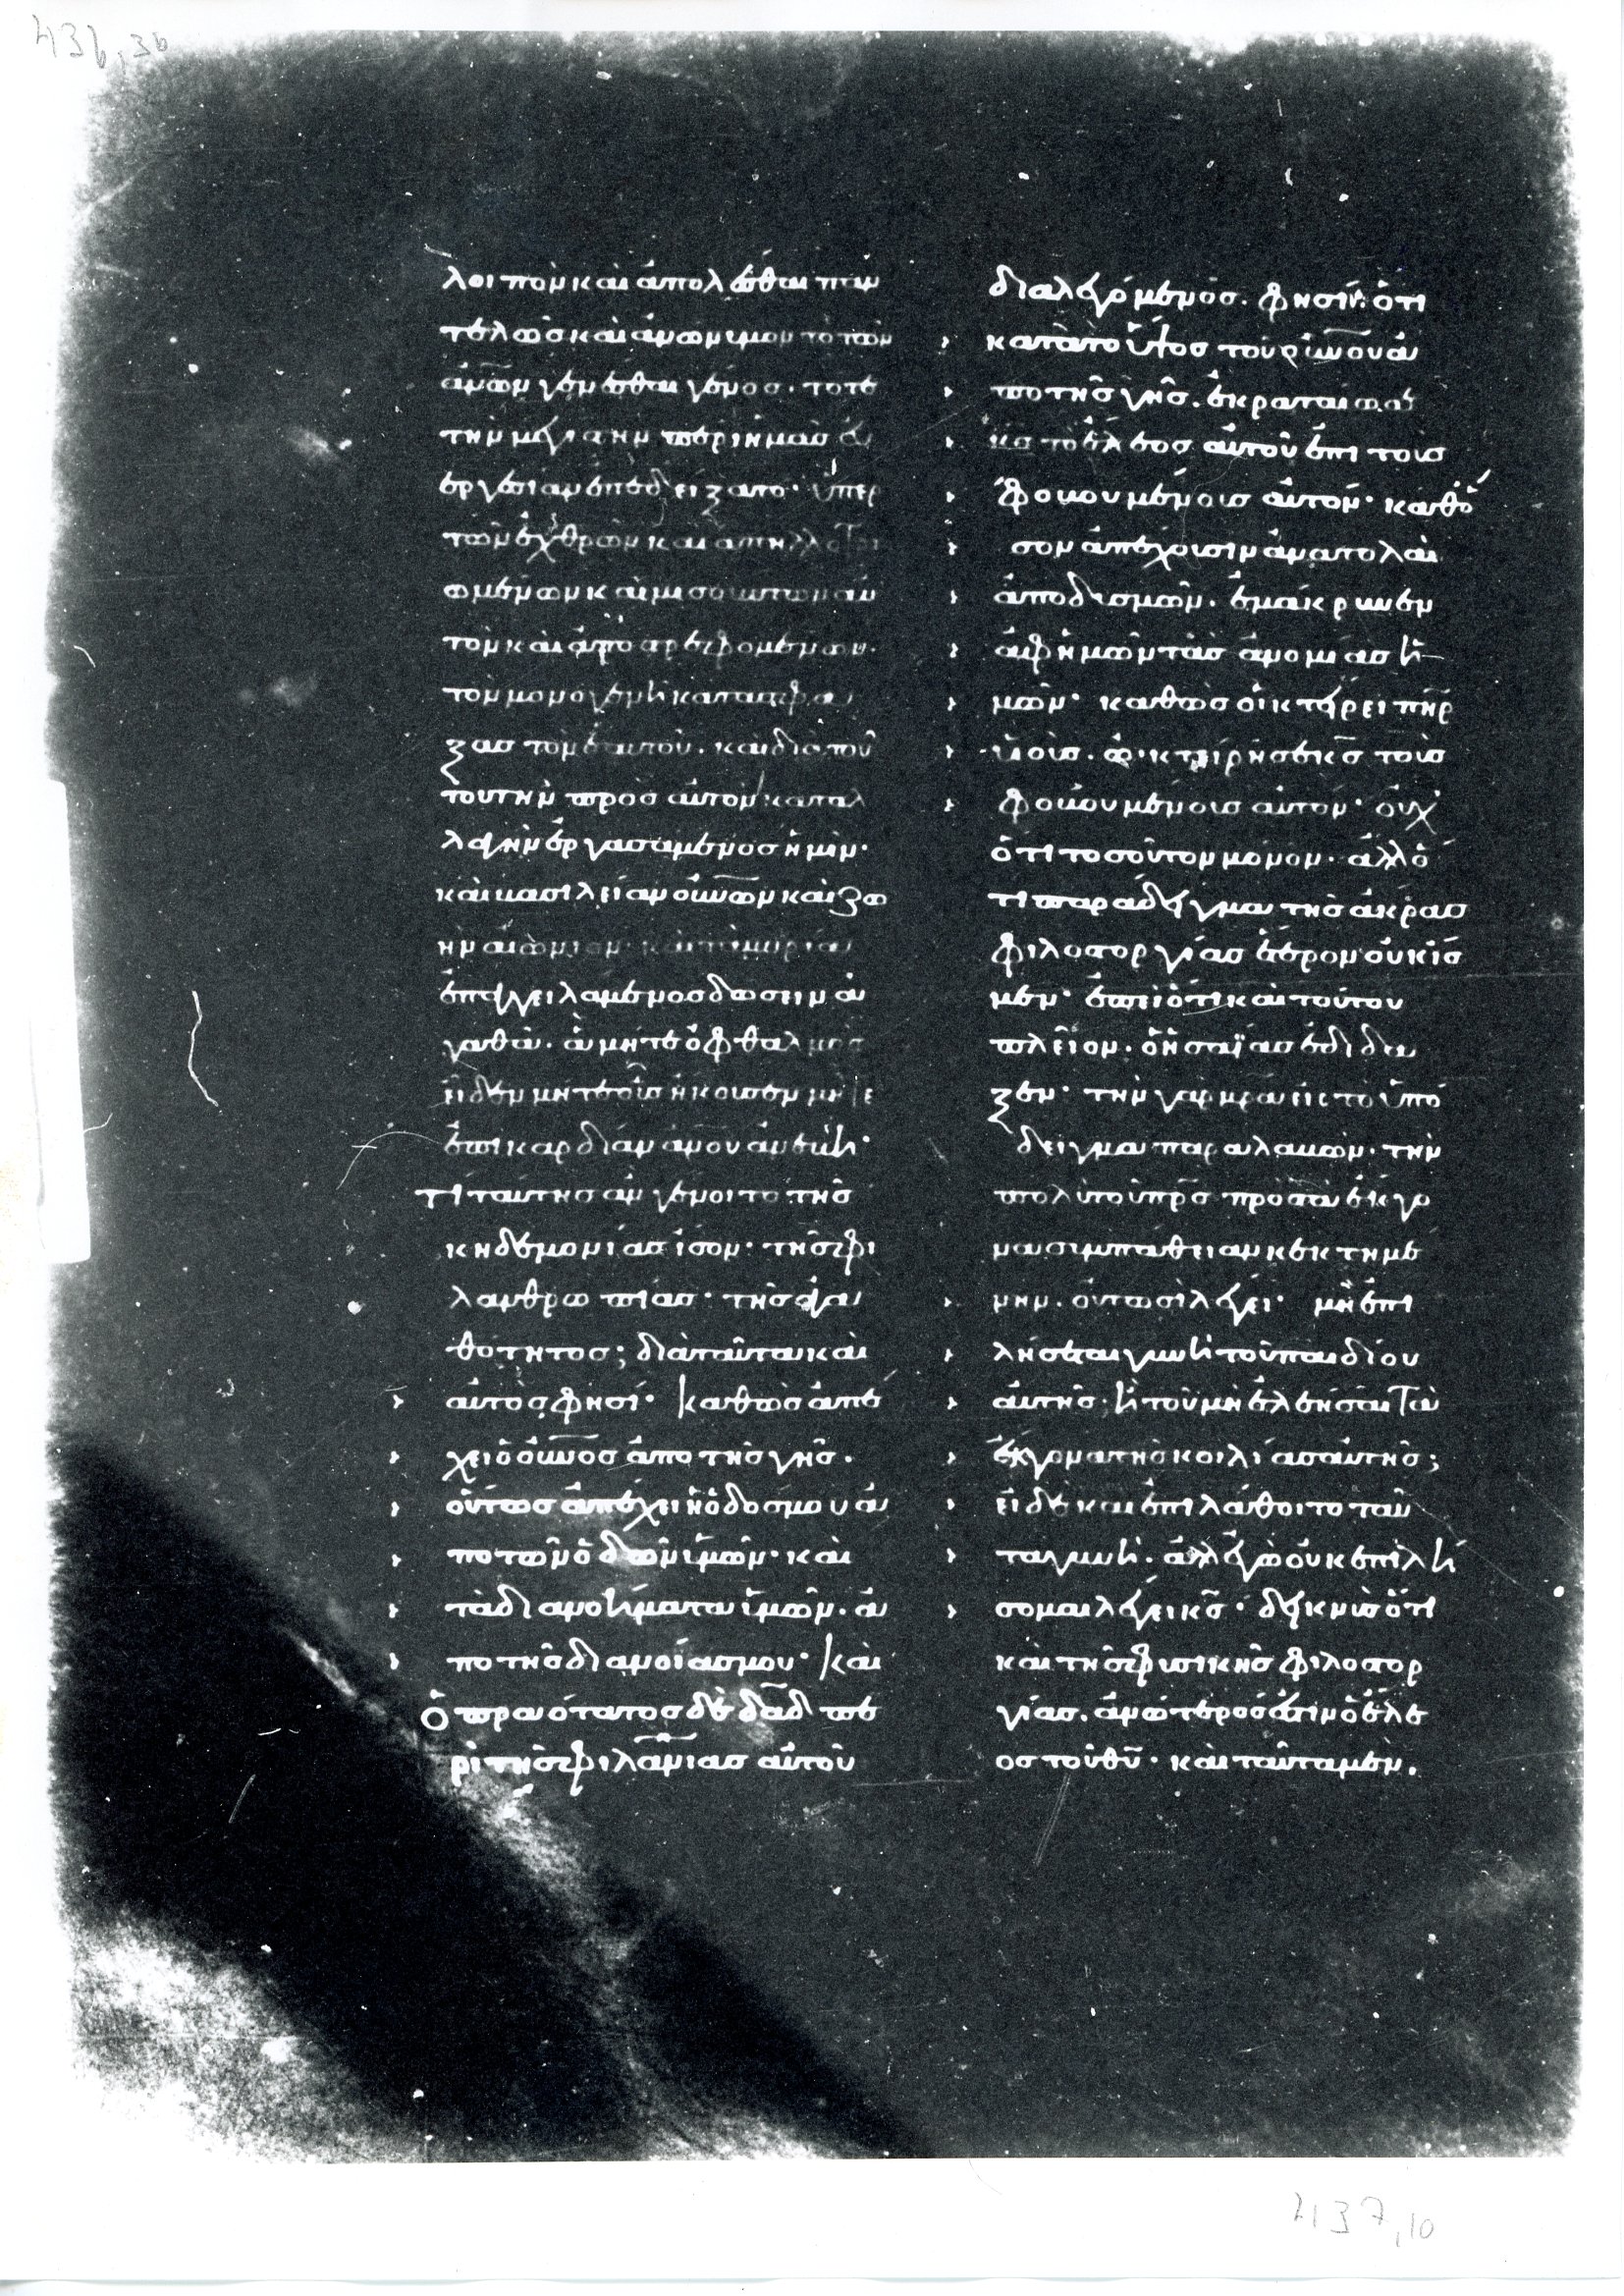 436,36
λοιπὸν καὶ ἀπολέσθαι παν
τελῶς καὶ ἀνώνυμον τὸ τῶν
ἀνων γενέσθαι γένος· τότε
τὴν μεγίστην περὶ ἡμᾶς εὐ
εργεσίαν ἐπεδείξατο· ὑπὲρ
τῶν ἐχθρῶν καὶ ἀπηλλοτρι
ωμένων καὶ μισούντων αὐ
τὸν καὶ ἀποστρεφομένων·
τὸν μονογενῆ κατασφά
ξας τὸν ἑαυτοῦ· καὶ διὰ τού
του τὴν πρὸς αὐτὸν καταλ
λαγὴν ἐργασάμενος ἡμῖν·
καὶ βασιλείαν οὐνῶν καὶ ζω
ὴν αἰώνιον· καὶ τὰ μυρία
ἐπαγγειλάμενος δώσειν ἀ
γαθὰ· ἃ μήτε ὀφθαλμὸς
εἶδεν μήτε οὖς ἤκουσεν μήτε
ἐπὶ καρδίαν ἀνου ἀνέβη·
τί ταύτης ἂν γένοιτο τῆς
κηδεμονίας ἴσον· τῆς φι
λανθρωπίας· τῆς ἀγα
θότητος; διὰ ταῦτα καὶ
αὐτός φησι· καθὼς ἀπέ
χει ὁ οὐνος ἀπὸ τῆς γῆς·
οὕτως ἀπέχει ἡ ὁδός μου ἀ
πὸ τῶν ὁδῶν ὑμῶν· καὶ
τὰ διανοήματα ὑμῶν· ἀ
πὸ τῆς διανοίας μου· καὶ
ὁ πραότατος δὲ δαδ πε
ρὶ τῆς φιλανιας αὐτοῦ
διαλεγόμενος· φησίν· ὅτι
κατὰ τὸ ὕψος τοῦ οὐνου ἀ
πὸ τῆς γῆς· ἐκραταίωσε
κς τὸ ἔλεος αὐτοῦ ἐπὶ τοὺς
φοβουμένους αὐτόν· καθό
σον ἀπέχουσιν ἀνατολαὶ
ἀπὸ δυσμῶν· ἐμάκρυνεν
ἀφ ἡμῶν τὰς ἀνομίας ἡ
μῶν· καθὼς οἰκτείρει πηρ
υἱούς· οἰκτείρησε κς τοὺς
φοβουμένους αὐτόν· οὐχ
ὅτι τοσοῦτον μόνον· ἀλλ ὅ
τι παράδειγμα τῆς ἄκρας
φιλοστοργίας ἕτερον οὐκ ἴσ
μεν· ἐπεὶ ὅτι καὶ τούτου
πλεῖον· ὁ ἡσαΐας ἐδίδα
ξεν· τὴν γὰρ μρα εἰς τὸ ὑπό
δειγμα παραλαβών· τὴν
πολὺ τοῦ πρς πρὸς τὰ ἔκγο
να συμπάθειαν κεκτημέ
νην· οὕτωσὶ λέγει· μὴ ἐπι
λήσεται γυνὴ τοῦ παιδίου
αὐτῆς· ἢ τοῦ μὴ ἐλεῆσαι τὰ
ἔκγονα τῆς κοιλίας αὐτῆς;
εἰ δὲ καὶ ἐπιλάθοιτο ταῦ
τα γυνή· ἀλλ ἐγὼ οὐκ ἐπιλή
σομαι λέγει κς· δεικνὺς ὅτι
καὶ τῆς φυσικῆς φιλοστορ
γίας· ἀνώτερός ἐστιν ὁ ἔλε
ος τοῦ θυ· καὶ ταῦτα μὲν·
437,10